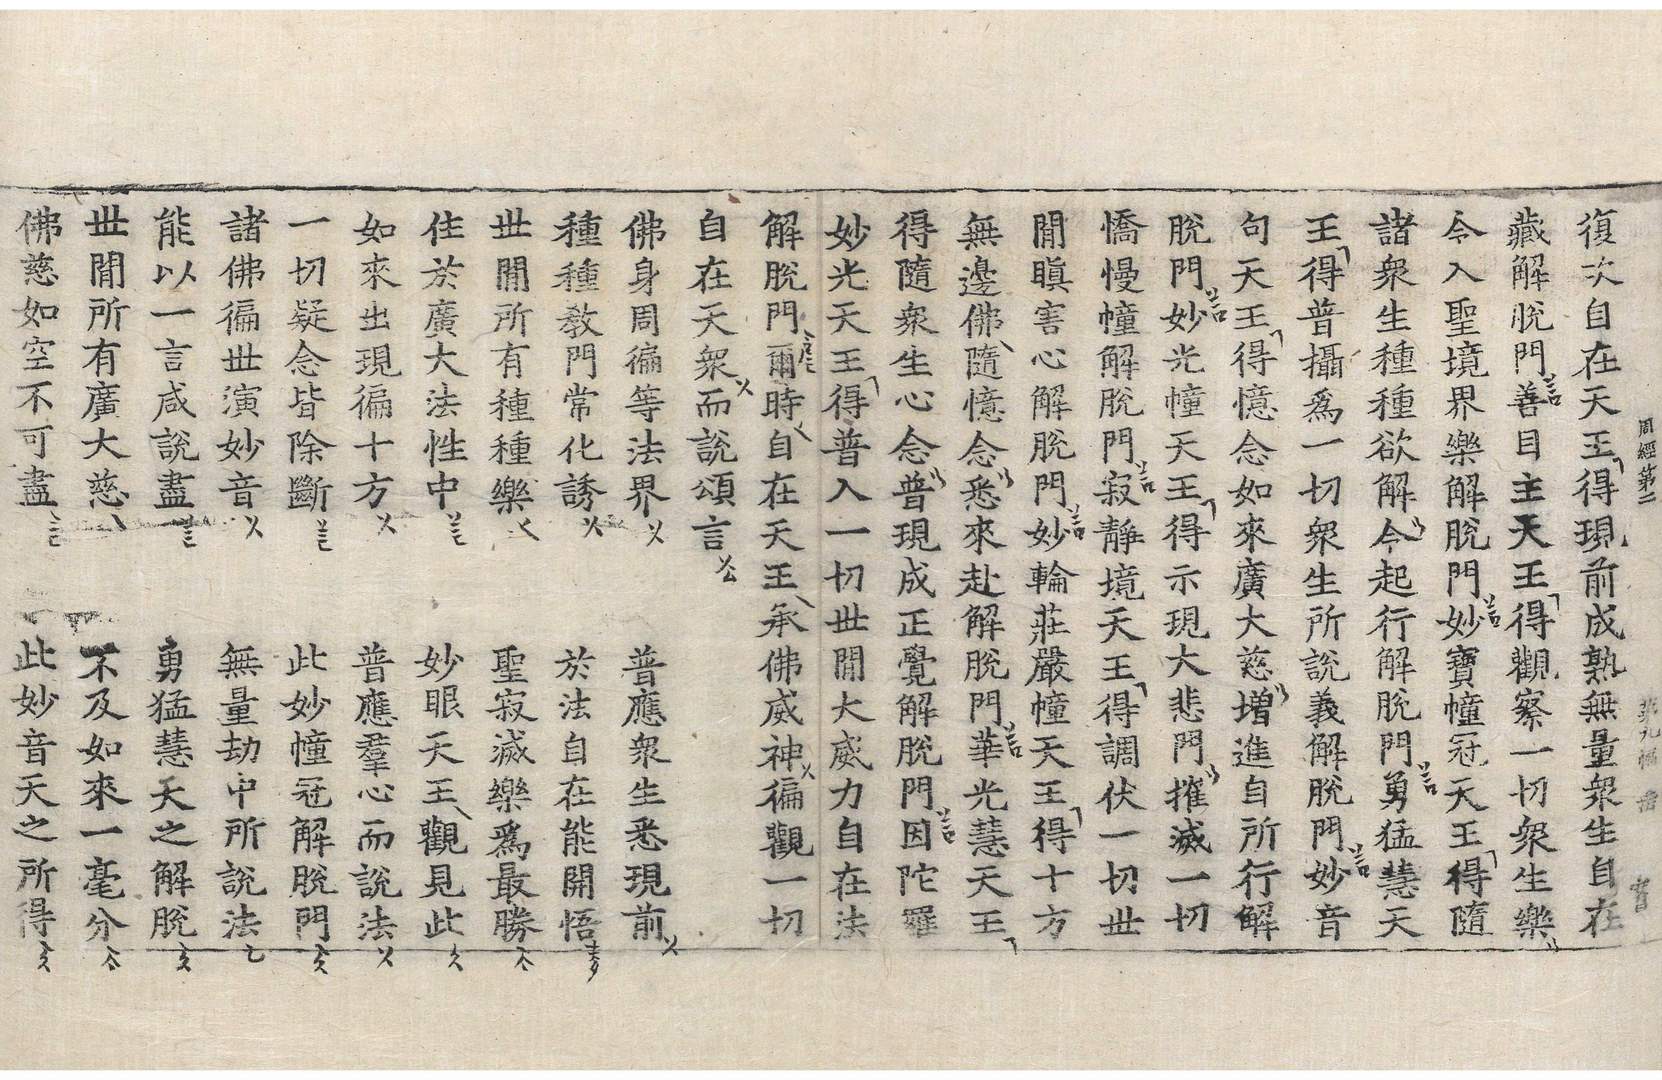 周經第二
復次自在天王得現前成熟無量衆生自在
藏解脫門善目主天王得觀察一切衆生樂
令入聖境界樂解脫門妙寶幢冠天王得隨
諸衆生種種欲解令起行解脫門勇猛慧天
王得普攝爲一切衆生所說義解脫門妙音
句天王得憶念如來廣大慈增進自所行解
脫門妙光幢天王得示現大悲門摧滅一切
憍慢幢解脫門寂靜境天王得調伏一切世
閒瞋害心解脫門妙輪莊嚴幢天王得十方
無邊佛隨憶念悉來赴解脫門華光慧天王
得隨衆生心念普現成正覺解脫門因陀羅
妙光天王得普入一切世閒大威力自在法
解脫門爾時自在天王承佛威神徧觀一切
自在天衆而說頌言
佛身周徧等法界 普應衆生悉現前
種種敎門常化誘 於法自在能開悟
世閒所有種種樂 聖寂滅樂爲最勝
住於廣大法性中 妙眼天王觀見此
如來出現徧十方 普應羣心而說法
一切疑念皆除斷 此妙幢冠解脫門
諸佛徧世演妙音 無量劫中所說法
能以一言咸說盡 勇猛慧天之解脫
世閒所有廣大慈 不及如來一毫分
佛慈如空不可盡 此妙音天之所得